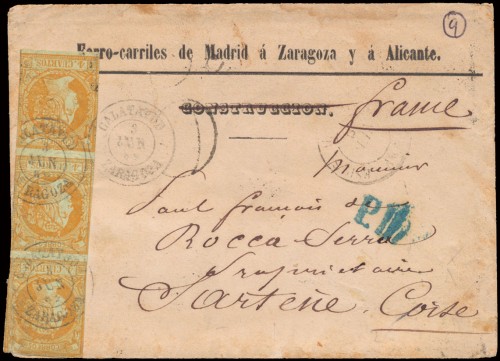 9
Ferro-carriles de Madrid á Zaragoza y á Alicante.
CONSTRUCCION.
france
CALATAYUD
3
JUN
ZARAGOZA
Monsieur
Paul françois de
Rocca Serra
Propriétaire
P.D.
Sartène, Corse
4 CUARTOS
CALATAYUD
3
JUN
ZARAGOZA
JUN
ZARAGOZA